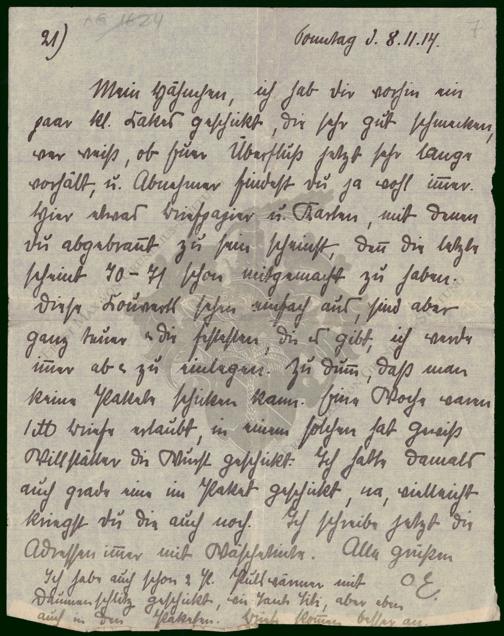 21)
Sonntag d. 8.11.14.
7
Mein Hähnchen, ich hab dir vorhin ein
paar kl. Cakes geschickt, die sehr gut schmecken,
wer weiß, ob Euer Überfluß jetzt sehr lange
vorhält, u. Abnehmer findest du ja wohl immer.
Hier etwas Briefpapier u. Karten, mit denen
du abgebrannt zu sein scheinst, denn die letzte
scheint 70-71 schon mitgemacht zu haben.
Diese Couverts sehen einfach aus, sind aber
ganz teuer die festesten, die es gibt, ich werde
immer ab zu einlegen. Zu dumm, daß man
keine Pakete schicken kann. Eine Woche waren
Briefe erlaubt, in einem solchen hat gewiß
Willstätter die Wurst geschickt. Ich hatte damals
auch grade eine im Paket geschickt, na, vielleicht
kriegst du die auch noch. Ich schreibe jetzt die
Adressen immer mit Wäschetinte. Alle grüßen
Ich habe auch schon 2 P. Pulswärmer mit
Daumenschlitz geschickt, von Tante Lili, aber eben
auch in den Paketen. Briefe kommen besser an.